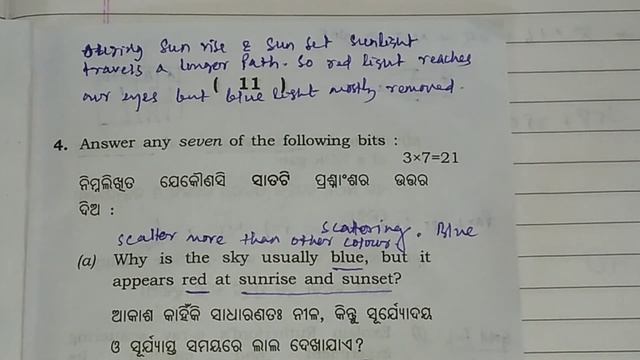 during sun rise & sun set sunlight
travels a longer path. So red light reaches
( 11 )
our eyes but blue light mostly removed.
4. Answer any seven of the following bits :
3×7=21
ନିମ୍ନଲିଖିତ ଯେକୌଣସି ସାତଟି ପ୍ରଶ୍ନାଂଶର ଉତ୍ତର
ଦିଅ :
scattering. Blue
scatter more than other colour,
(a) Why is the sky usually blue, but it
appears red at sunrise and sunset?
ଆକାଶ କାହିଁକି ସାଧାରଣତଃ ନୀଳ, କିନ୍ତୁ ସୂର୍ଯ୍ୟୋଦୟ
ଓ ସୂର୍ଯ୍ୟାସ୍ତ ସମୟରେ ଲାଲ ଦେଖାଯାଏ ?